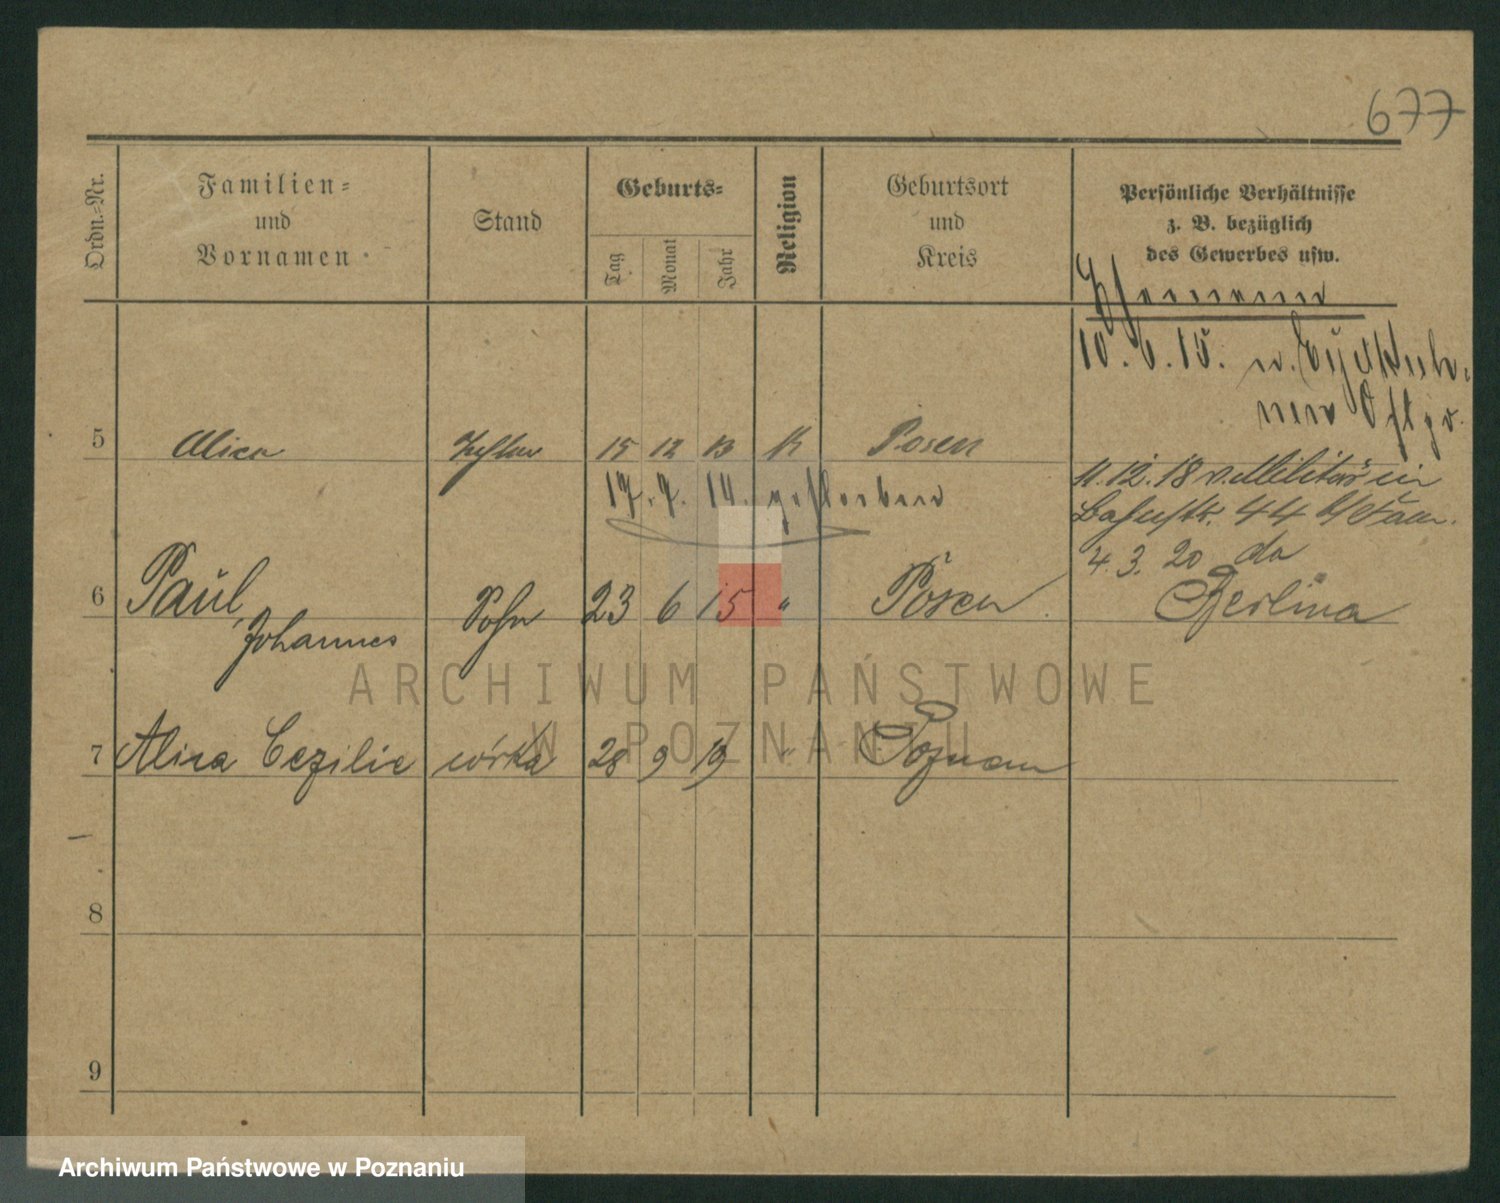 677
Ordn.-Nr.
Familien-
und
Vornamen
Stand
Geburts-
Tag
Monat
Jahr
Religion
Geburtsort
und
Kreis
Persönliche Verhältnisse
z. B. bezüglich
des Gewerbes usw.
10. 6. 15. v.
5 Alica Tochter 15 12 13 K Posen
17. 7. 14. gestorben
11. 12. 18 v. Militär in
Bahnstr. 44 b/
4. 3. 20 do
Berlina
6 Paul, Sohn 23 6 15 " Posen
Johannes
7 Alica Cezilie córka 28 9 19 " Poznan
8
9
ARCHIWUM PAŃSTWOWE
W POZNANIU
Archiwum Państwowe w Poznaniu